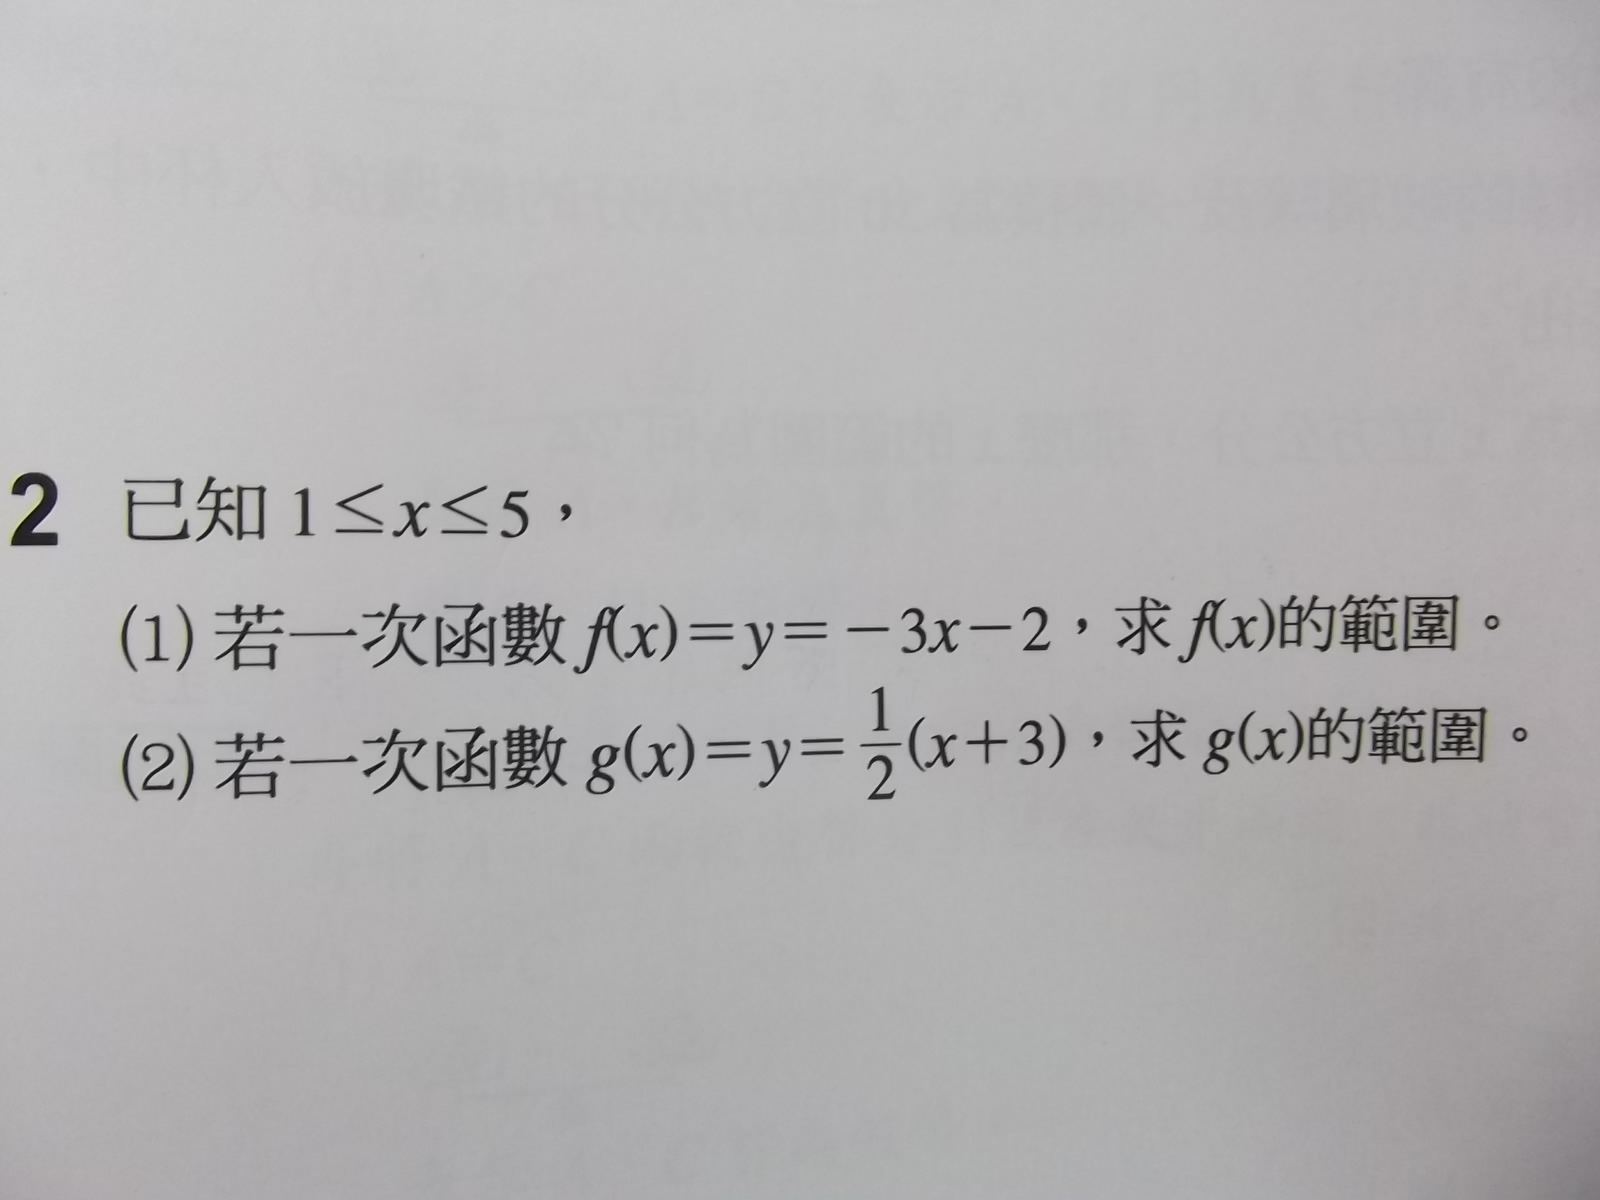 2 已知 1≤x≤5，
(1) 若一次函數 f(x)=y=−3x−2，求 f(x)的範圍。
(2) 若一次函數 g(x)=y=\frac{1}{2}(x+3)，求 g(x)的範圍。